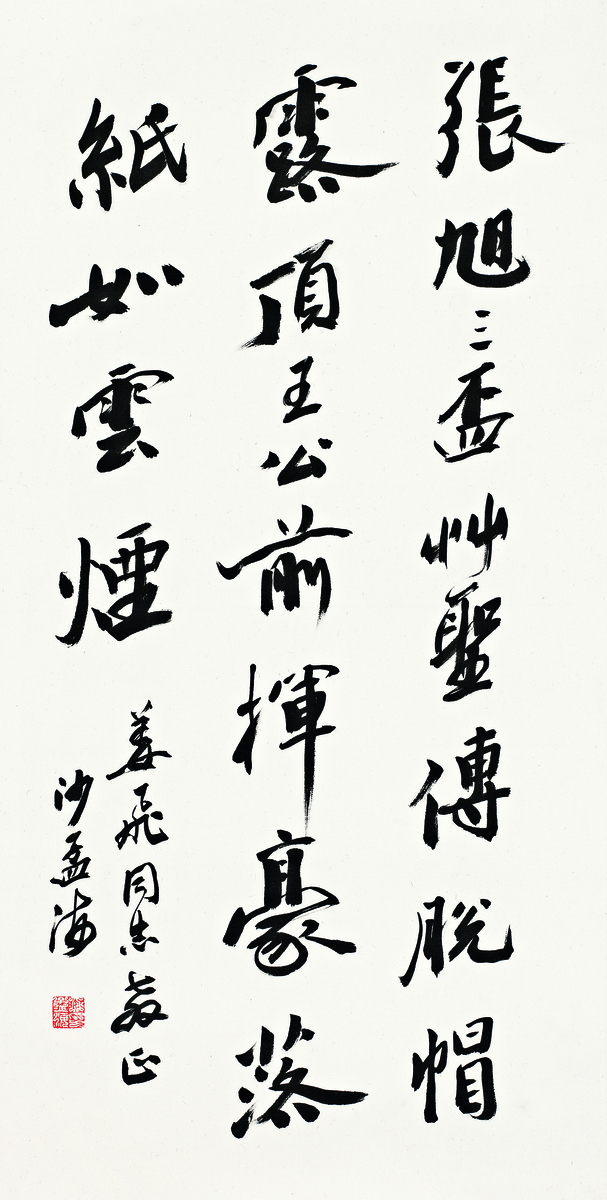 張旭三盃艸聖傳脫帽
露頂王公前揮豪落
紙如雲煙
姜飛同志教正
沙孟海